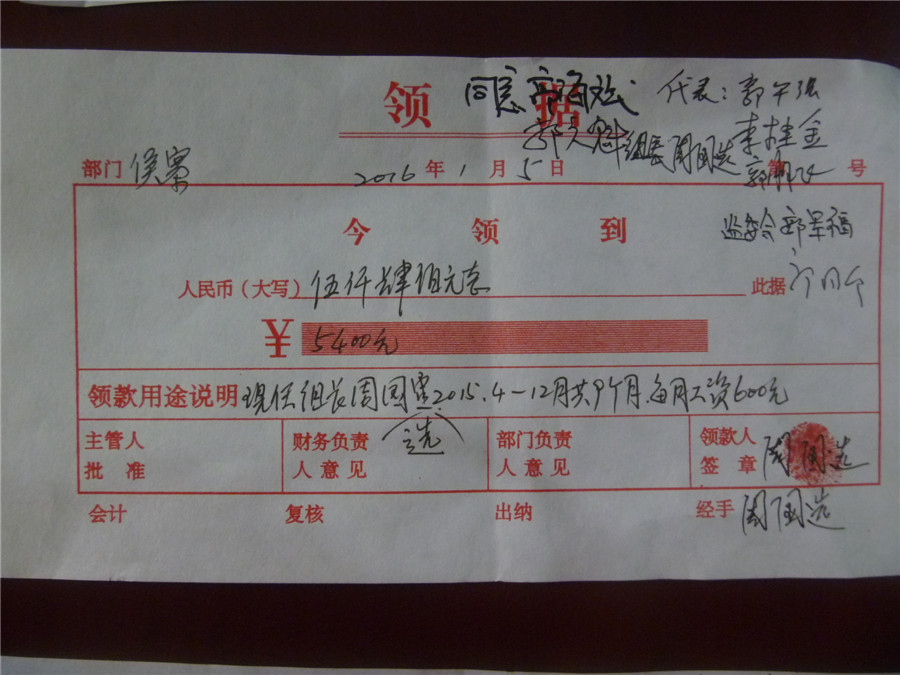 领 据
同意
代表：郭午強
李桂金
组长周国选
部门 侯寨 2016年1月5日 号
今领到
监委会 郭军福
人民币（大写） 伍仟肆佰元整 此据
¥ 5400元
领款用途说明 现任组长周国宪2015.4-12月共9个月.每月工资600元
选
主管人批准 财务负责人意见 部门负责人意见 领款人签章 周国选
会计 复核 出纳 经手 周国选